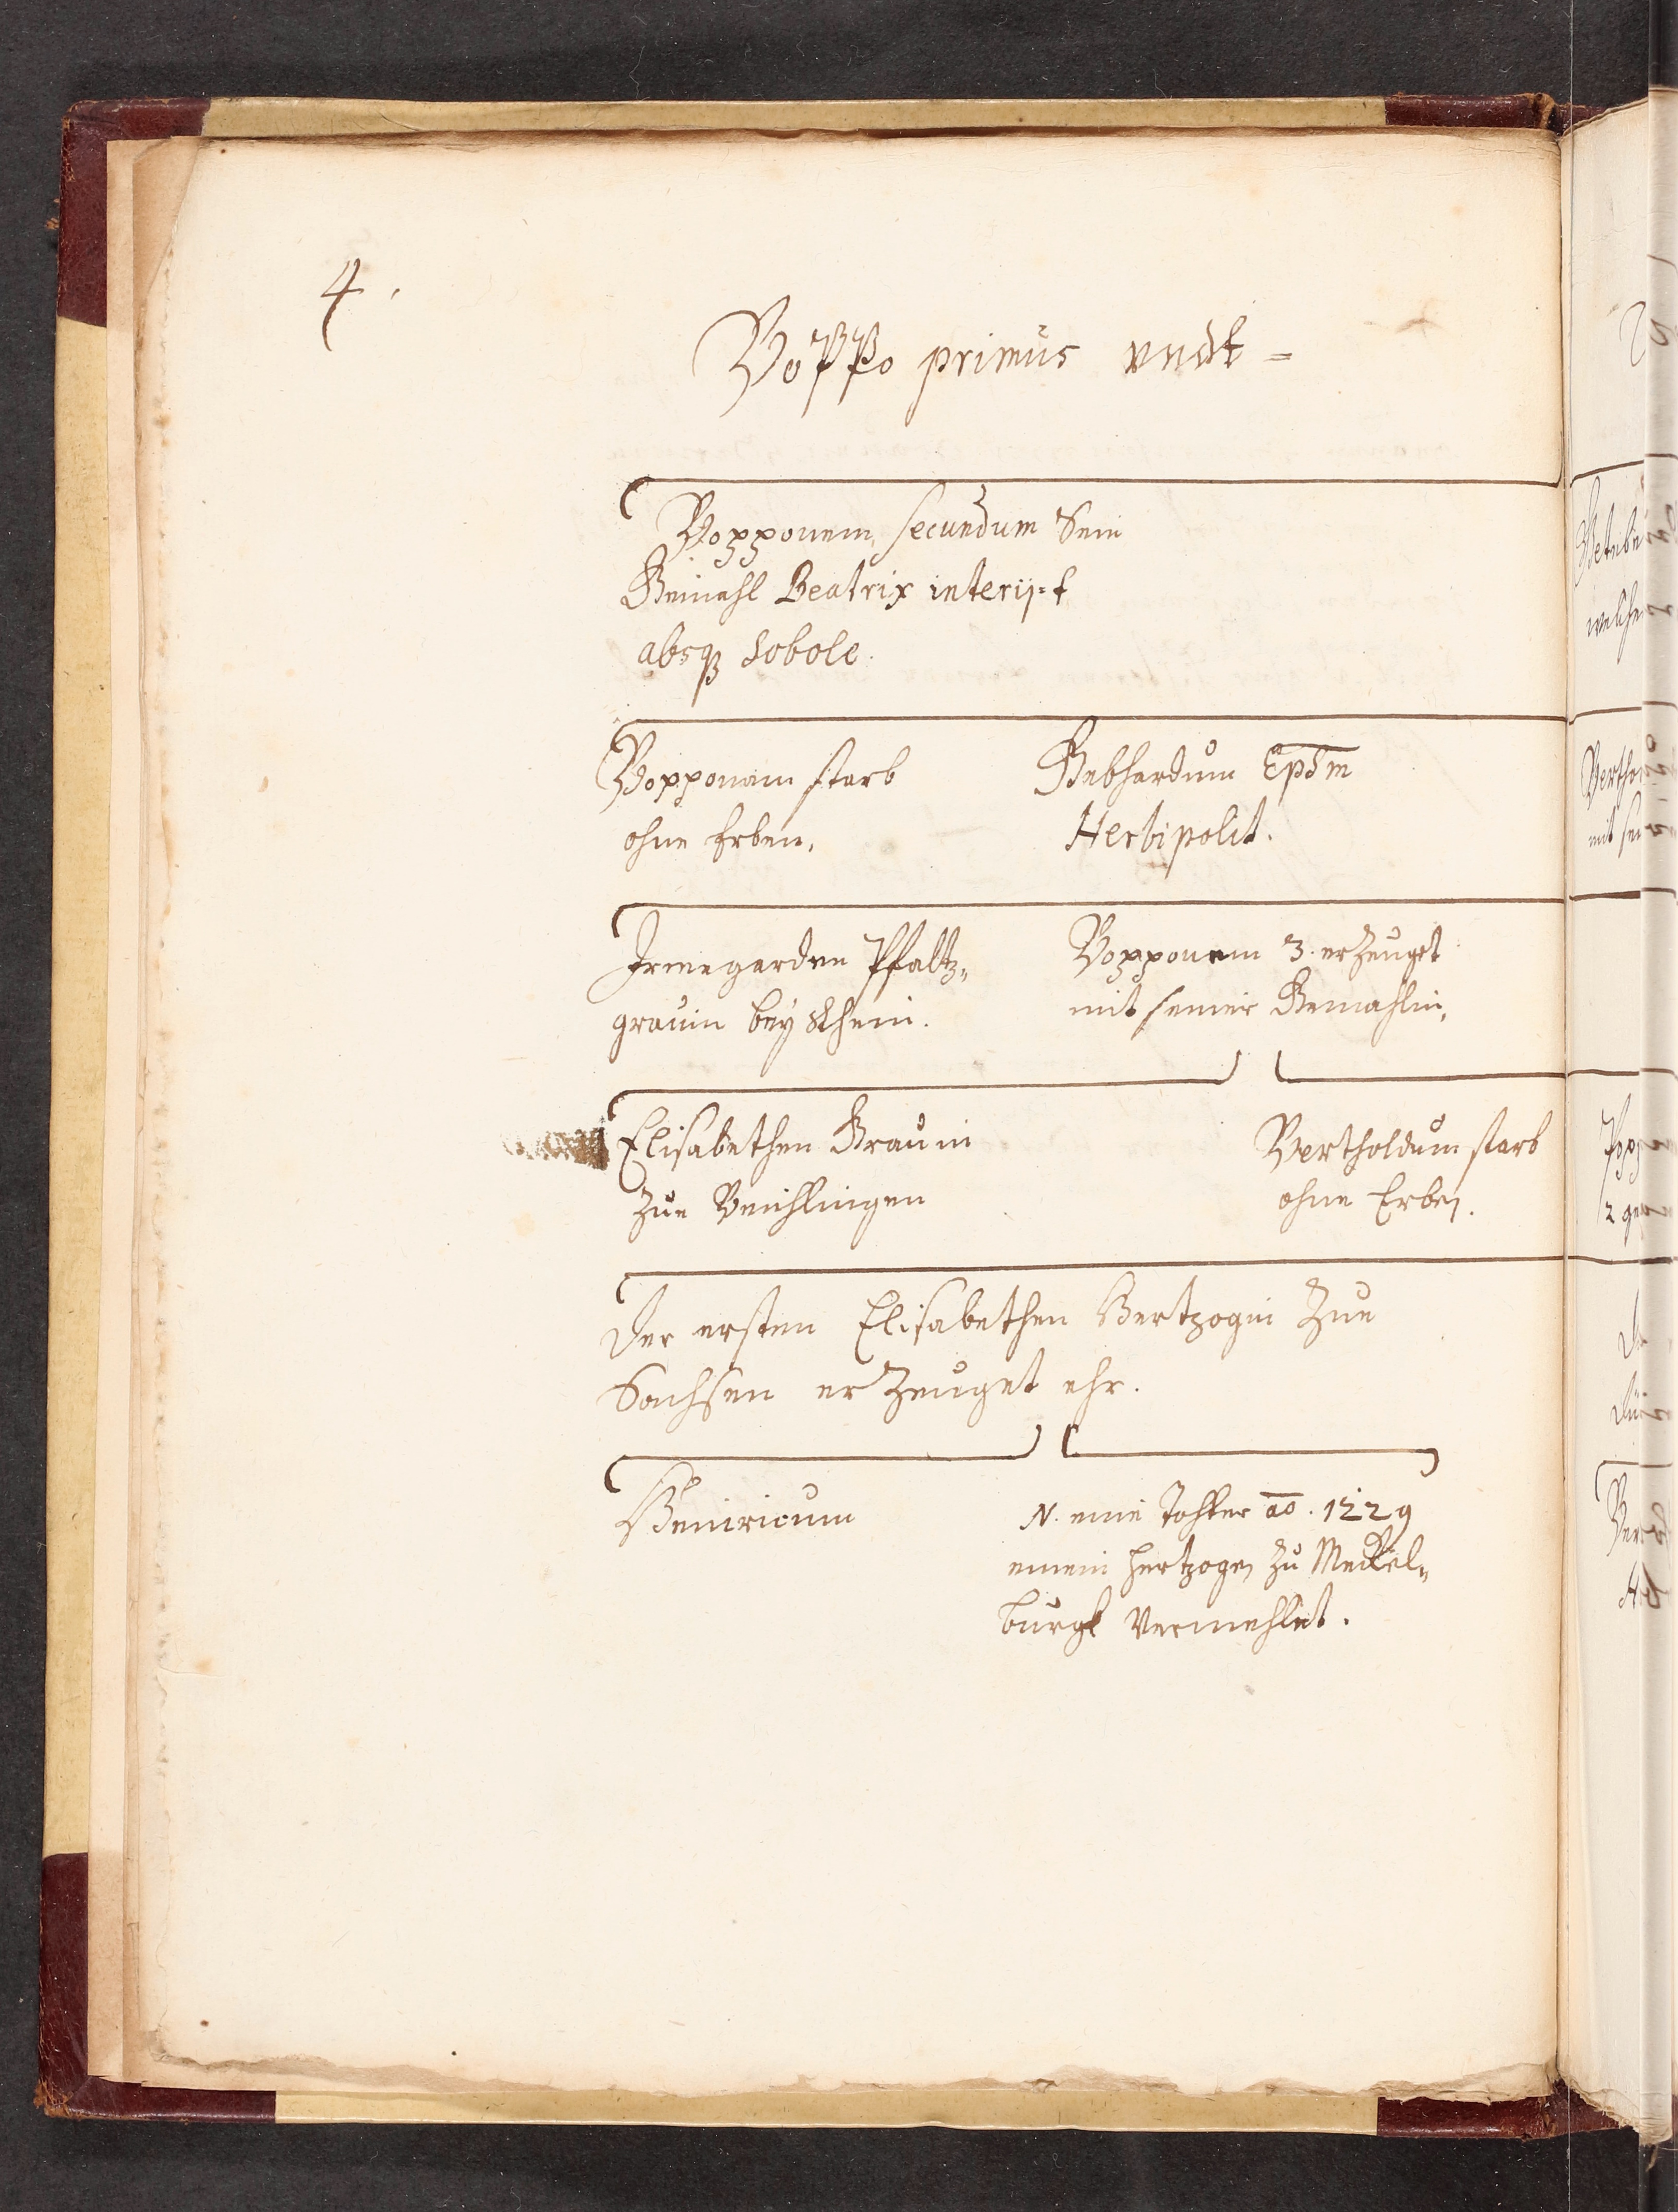 4.
Poppo primus vndt=
Popponem, secundum Sein
Gemahl Beatrix interijt
absq3 sobole.
Popponem starb
ohne Erben,
Gebhardum Epm
Herbipolit.
Irmegarden Pfaltz„
grauin bey Rhein.
Popponem 3. erzeuget
mit seiner Gemahlin,
Elisabethen Grauin
zue Beichlingen
Bertholdum starb
ohne Erben.
Der ersten Elisabethen Hertzogin Zue
Sachsen erzeuget ehr.
Heinricum
N. eine Tohter ao. 1229
einem Hertzogen zu Meckel„
burgk vermehlet.